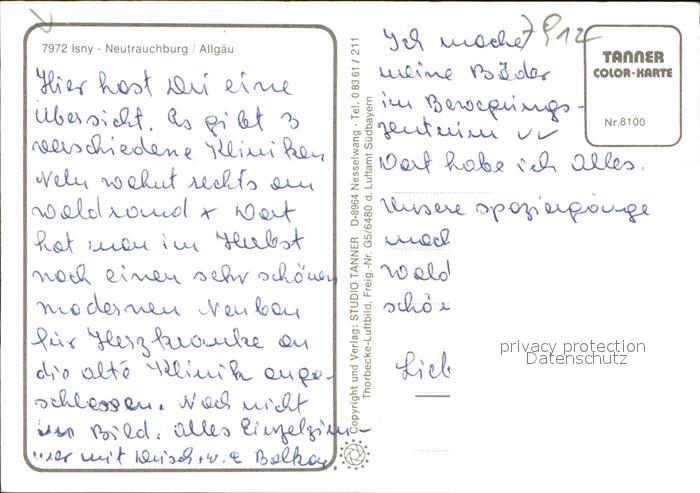 7972 Isny - Neutrauchburg / Allgäu
Hier hast Du eine
Übersicht. Es gibt 3
verschiedene Kliniken
wohnt rechts am
Waldrand x Dort
hat man im Herbst
noch einen sehr schönen
modernen Neubau
für Herzkranke an
die alte Klinik ange-
schlossen. Noch nicht
im Bild. Alles Einzelzim-
mer mit Dusch. u. Balkon.
Copyright und Verlag: STUDIO TANNER D-8964 Nesselwang · Tel. 0 83 61 / 211
Thorbecke-Luftbild, Freig.-Nr. G5/6480 d. Luftamt Südbayern
Ich mache
meine Bäder
im Bewegungs-
zentrum vv
Dort habe ich alles.
Unsere Spaziergänge
mach
Wald
schön
Lieb
7912
TANNER
COLOR-KARTE
Nr.8100
privacy protection
Datenschutz